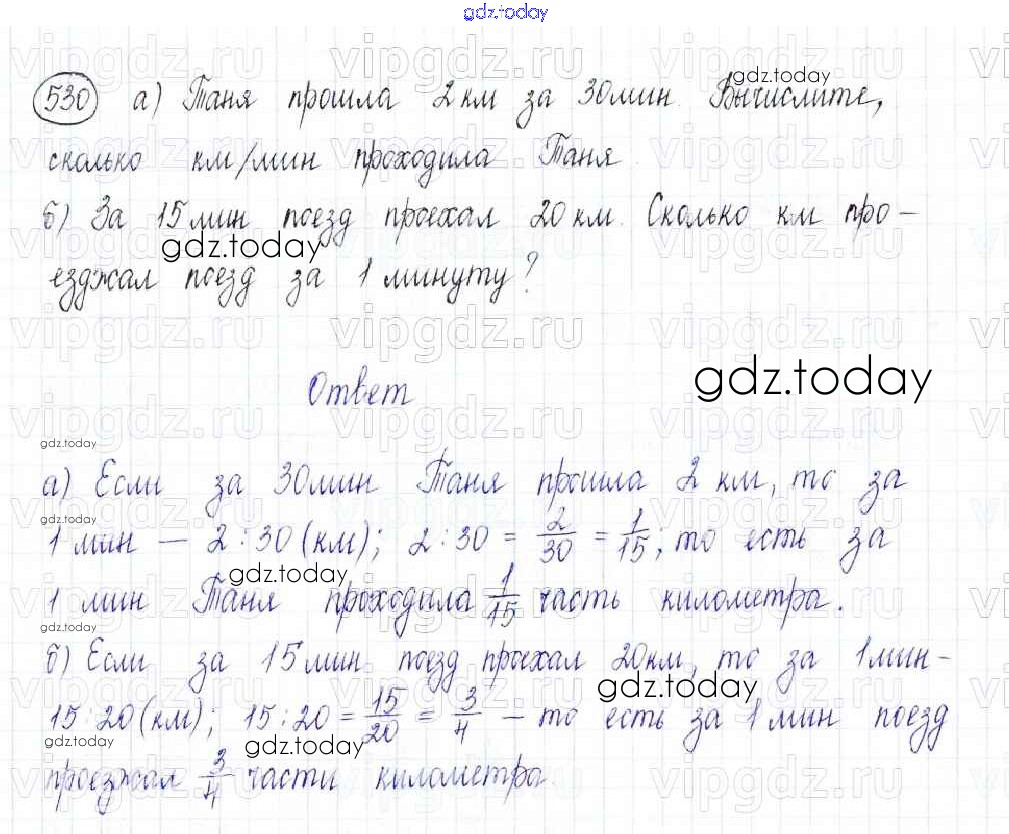 gdz.today
530 а) Таня прошла 2 км за 30 мин. Вычислите,
gdz.today
сколько км/мин проходила Таня.
б) За 15 мин поезд проехал 20 км. Сколько км про-
gdz.today
езджал поезд за 1 минуту?
Ответ
gdz.today
gdz.today
а) Если за 30 мин Таня прошла 2 км, то за
gdz.today
1 мин — 2:30 (км); 2:30 = 2/30 = 1/15; то есть за
gdz.today
1 мин Таня проходила 1/15 часть километра.
gdz.today
б) Если за 15 мин поезд проехал 20 км, то за 1 мин -
gdz.today
15:20 (км); 15:20 = 15/20 = 3/4 – то есть за 1 мин поезд
gdz.today
gdz.today
проезжал 3/4 части километра.
vipgdz.ru